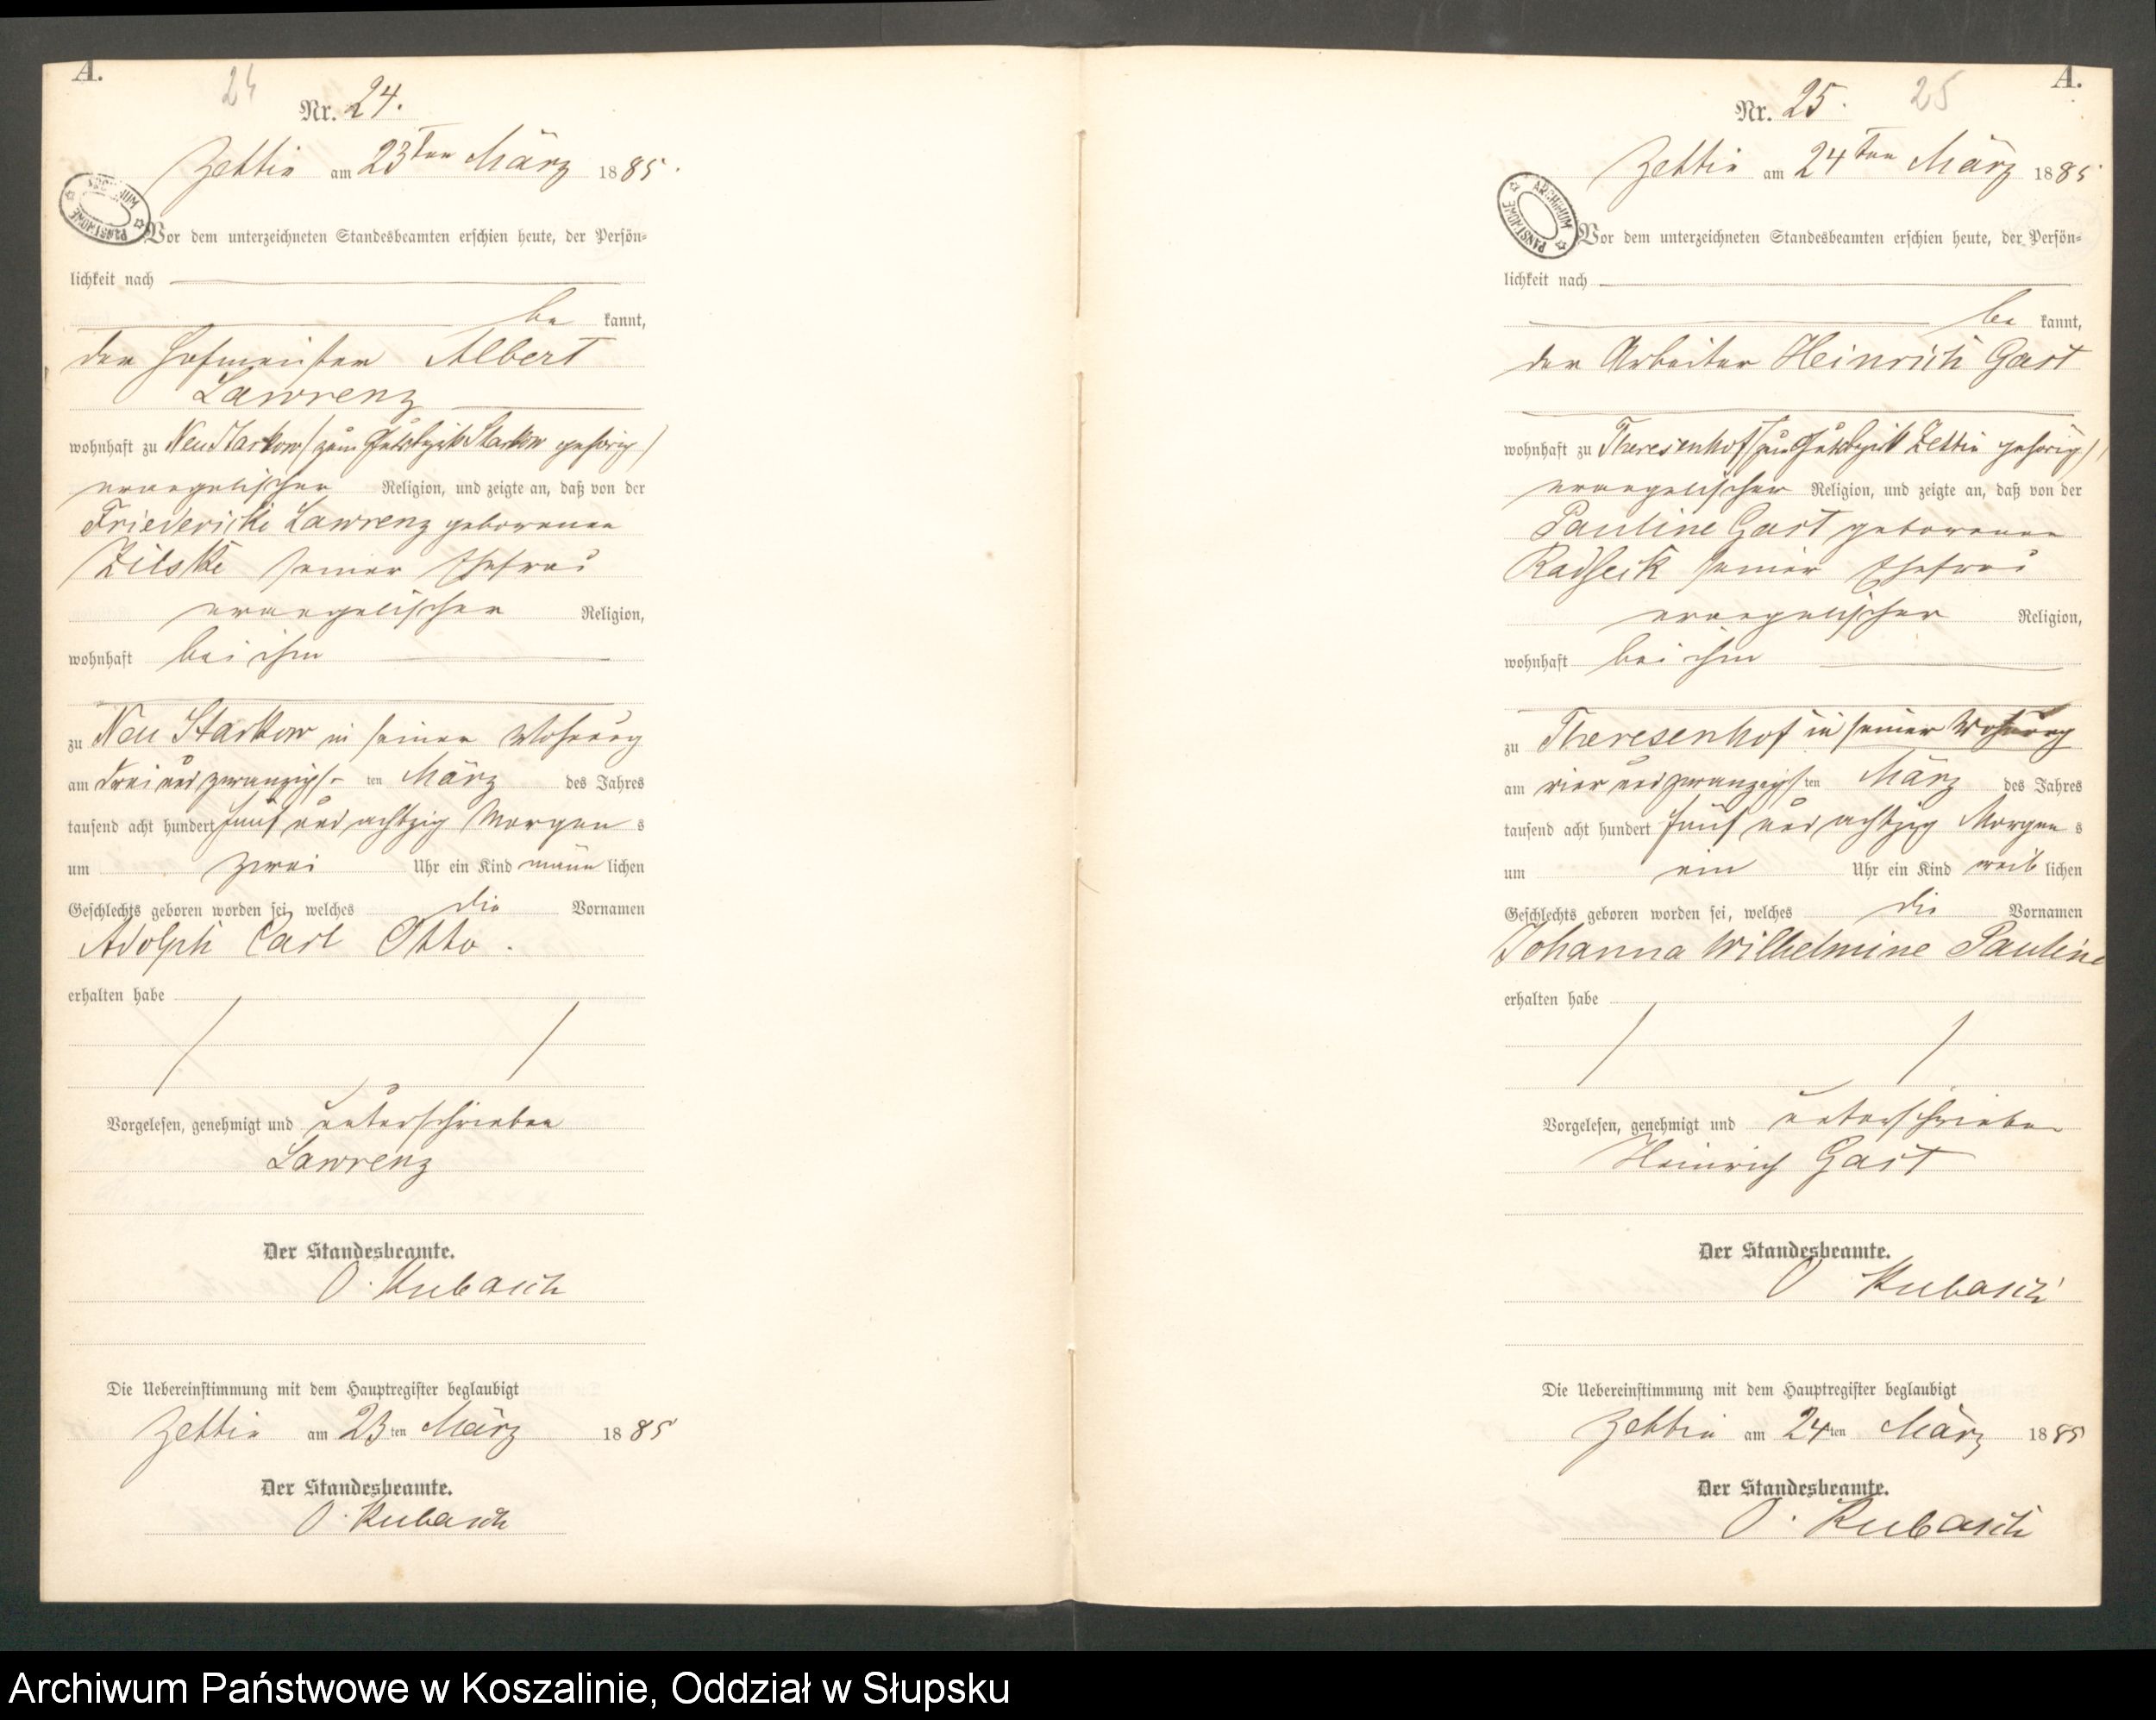 A.
24
Nr. 24.
Zettin am 23ten März 1885.
ARCHIWUM PAŃSTWOWE
Vor dem unterzeichneten Standesbeamten erschien heute, der Persön=
lichkeit nach
be kannt,
der Hofmeister Albert
Lawrenz
wohnhaft zu Neu Starkow (zum Gutsbezirk Starkow gehörig)
evangelischer Religion, und zeigte an, daß von der
Friedericke Lawrenz geborenen
Zilske seiner Ehefrau
evangelischer Religion,
wohnhaft bei ihm
zu Neu Starkow in seiner Wohnung
am drei und zwanzigs- ten März des Jahres
tausend acht hundert fünf und achtzig Morgen s
um zwei Uhr ein Kind männ lichen
Geschlechts geboren worden sei, welches die Vornamen
Adolph Carl Otto.
erhalten habe
Vorgelesen, genehmigt und unterschrieben
Lawrenz
Der Standesbeamte.
O. Kubasch
Die Uebereinstimmung mit dem Hauptregister beglaubigt
Zettin am 23ten März 1885
Der Standesbeamte.
O. Kubasch
A.
25
Nr. 25.
Zettin am 24ten März 1885
ARCHIWUM PAŃSTWOWE
Vor dem unterzeichneten Standesbeamten erschien heute, der Persön=
lichkeit nach
be kannt,
der Arbeiter Heinrich Gast
wohnhaft zu Theresenhof (zum Gutsbezirk Zettin gehörig)
evangelischer Religion, und zeigte an, daß von der
Pauline Gast geborenen
seiner Ehefrau
evangelischer Religion,
wohnhaft bei ihm
zu Theresenhof in seiner Wohnung
am vier und zwanzigs ten März des Jahres
tausend acht hundert fünf und achtzig Morgen s
um ein Uhr ein Kind weib lichen
Geschlechts geboren worden sei, welches die Vornamen
Johanna Wilhelmine Pauline
erhalten habe
Vorgelesen, genehmigt und unterschrieben
Heinrich Gast
Der Standesbeamte.
O Kubasch
Die Uebereinstimmung mit dem Hauptregister beglaubigt
Zettin am 24ten März 1885
Der Standesbeamte.
O. Kubasch
Archiwum Państwowe w Koszalinie, Oddział w Słupsku